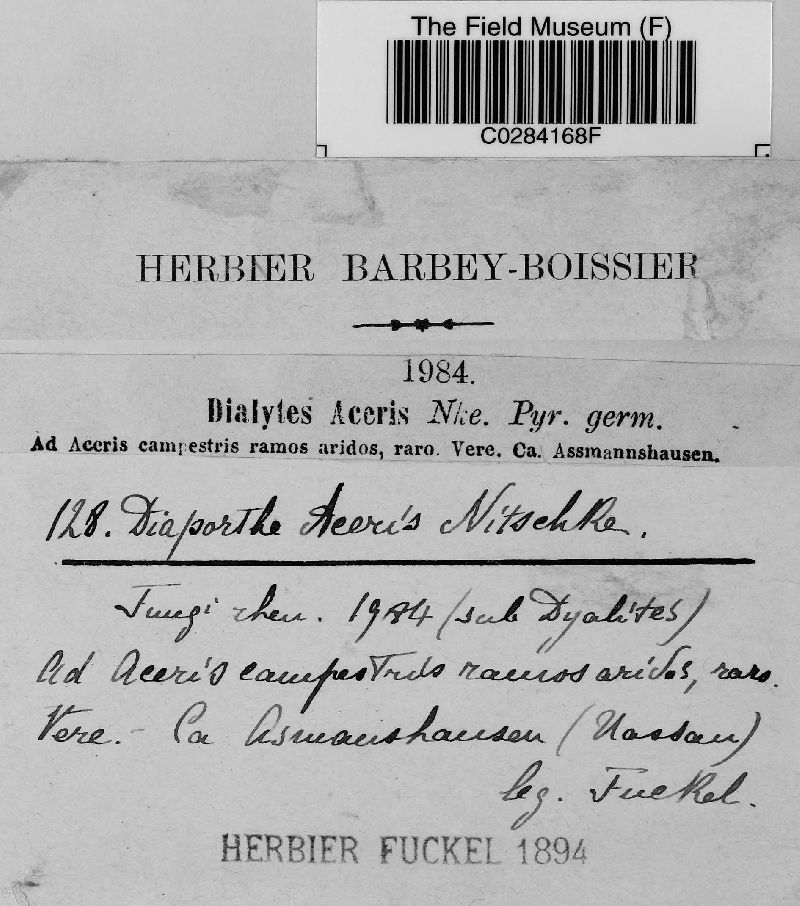 The Field Museum (F)
C0284168F
HERBIER BARBEY-BOISSIER
1984.
Dialytes Aceris Nke. Pyr. germ.
Ad Aceris campestris ramos aridos, raro. Vere. Ca. Assmannshausen.
128. Diaporthe Aceris Nitschke.
Fungi rhen. 1984 (sub Dyalites)
Ad Aceris campestris ramos aridos, raro.
Vere. - Ca Asmanshausen (Nassau)
leg. Fuckel.
HERBIER FUCKEL 1894